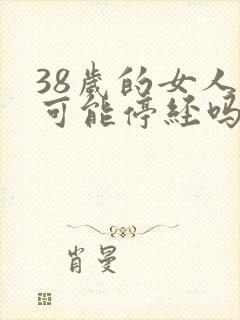 38歲的女人
可能停经吗
肖曼